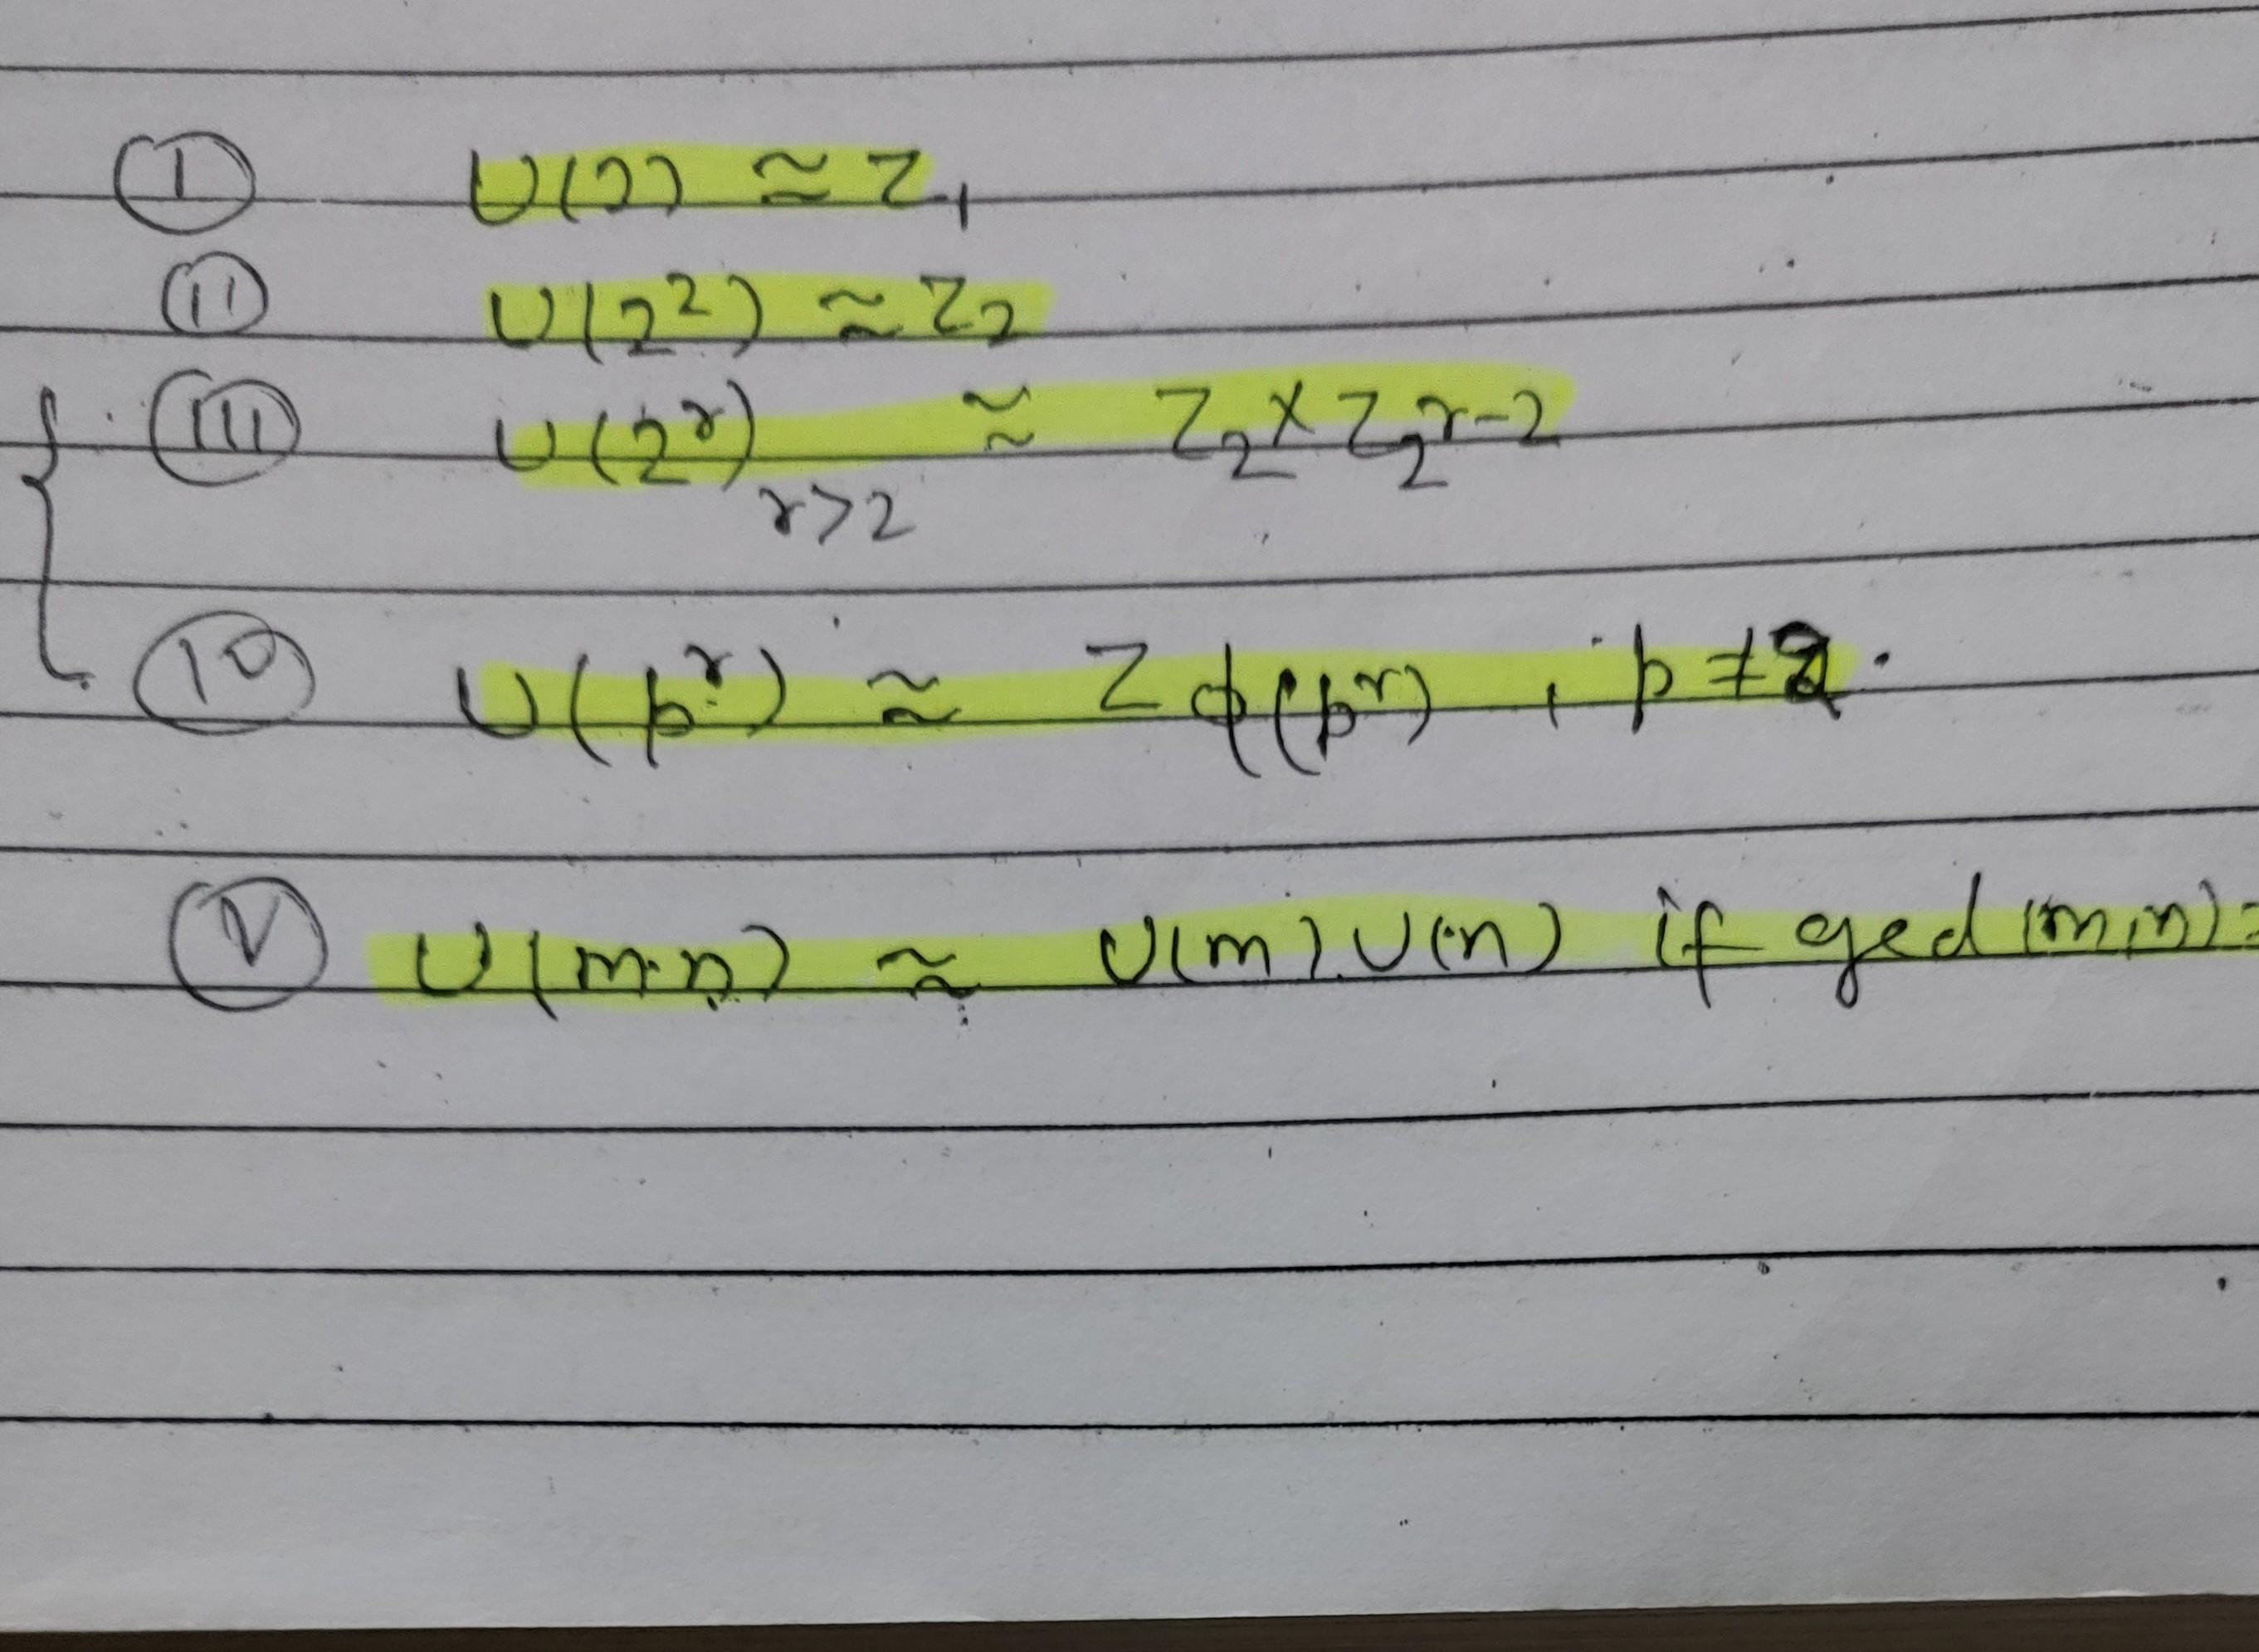 (I) U(2) ≅ Z₁
(II) U(2²) ≅ Z₂
(III) U(2ʳ) ≅ Z₂ × Z₂ʳ⁻²
r>2
(IV) U(pʳ) ≅ Z ϕ(pʳ) , p ≠ 2.
(V) U(m·n) ≅ U(m).U(n) if gcd (m,n)=